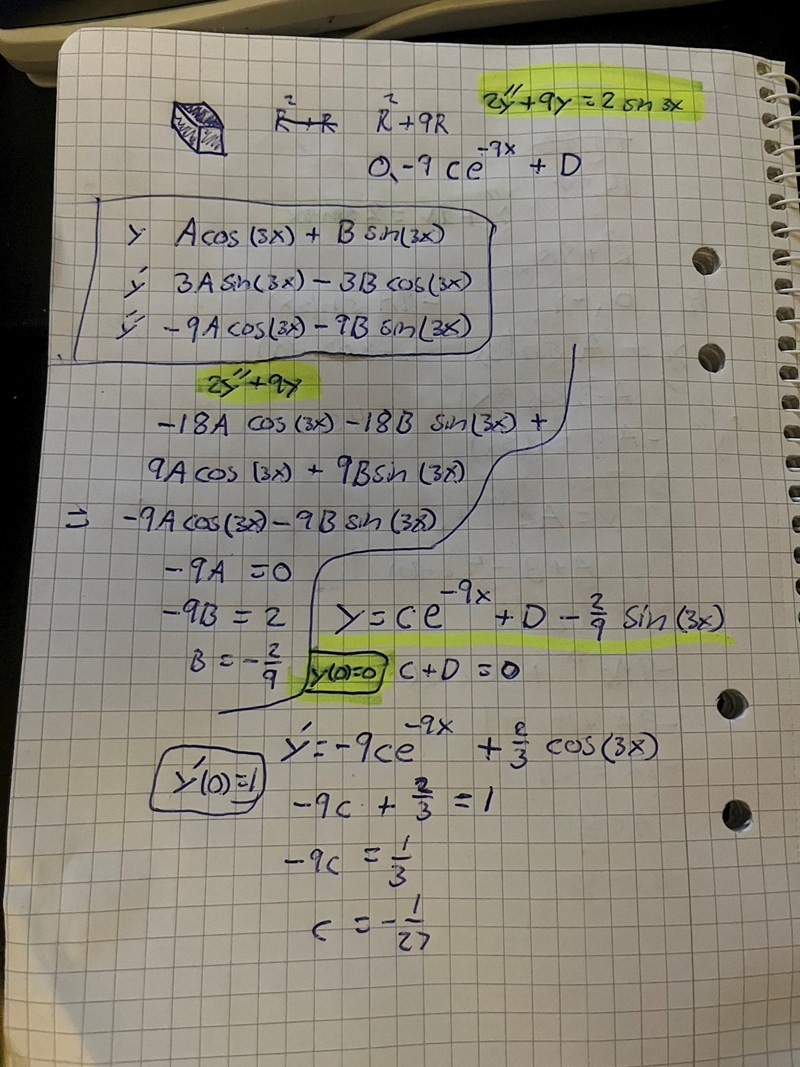 2y''+9y=2 sin 3x
R²+R R²+9R
0, -9 ce^{-9x} + D
y Acos(3x) + B sin(3x)
y' 3A sin(3x) - 3B cos(3x)
y'' -9A cos(3x) - 9B sin(3x)
2y''+9y
-18A cos(3x) -18B sin(3x) +
9A cos(3x) + 9B sin(3x)
⇒ -9A cos(3x) - 9B sin(3x)
-9A = 0
-9B = 2
B = -2/9
y = ce^{-9x} + D - 2/9 sin(3x)
y(0)=0 C+D = 0
y' = -9ce^{-9x} + 2/3 cos(3x)
y'(0)=1
-9c + 2/3 = 1
-9c = 1/3
c = -1/27